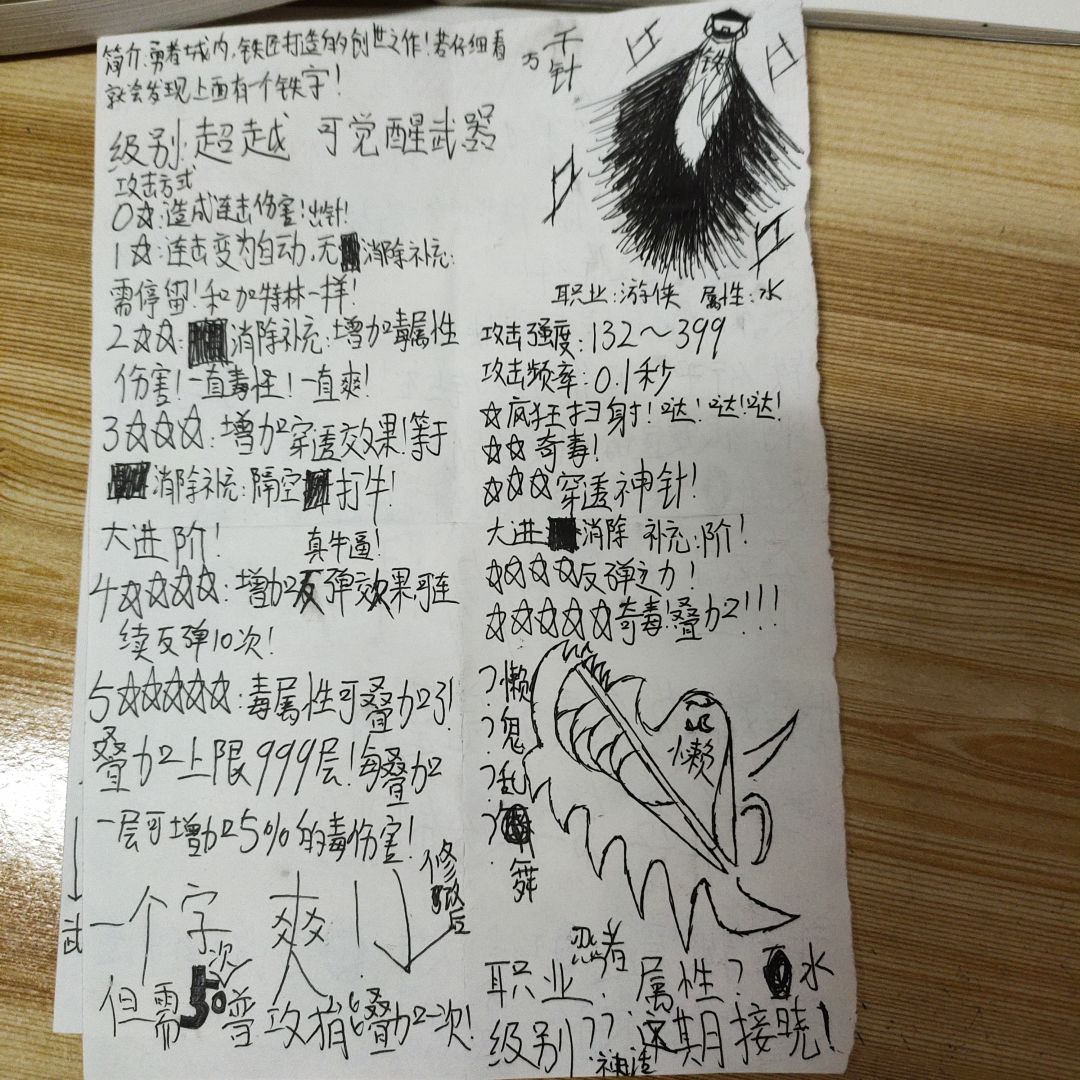 简介:勇者城内,铁匠打造的创世之作!若仔细看
就会发现上面有一个铁字!
级别:超越 可觉醒武器
攻击方式
0☆:造成连击伤害!出针!
1☆:连击变为自动,无消除补充:
需停留!和加特林一样!
2☆☆:消除补充:增加毒属性
伤害!一直毒怪!一直爽!
3☆☆☆:增加穿透效果!等于
消除补充:隔空打牛!
大进阶! 真牛逼!
4☆☆☆☆:增加反弹效果,可连
续反弹10次!
5☆☆☆☆☆:毒属性可叠加了!
叠加上限999层!每叠加
一层可增加25%的毒伤害!
一个字 爽!
修改后
但需50次普攻才能叠加一次!
武
万
千
针
铁
职业:游侠 属性:水
攻击强度:132~399
攻击频率:0.1秒
☆疯狂扫射!哒!哒!哒!
☆☆奇毒!
☆☆☆穿透神针!
大进消除 补充:阶!
☆☆☆☆反弹之力!
☆☆☆☆☆奇毒!叠加!!!
?懒
?鬼
?乱
?
舞
懒
职业?忍者 属性?水
级别??神造 下期接晓!